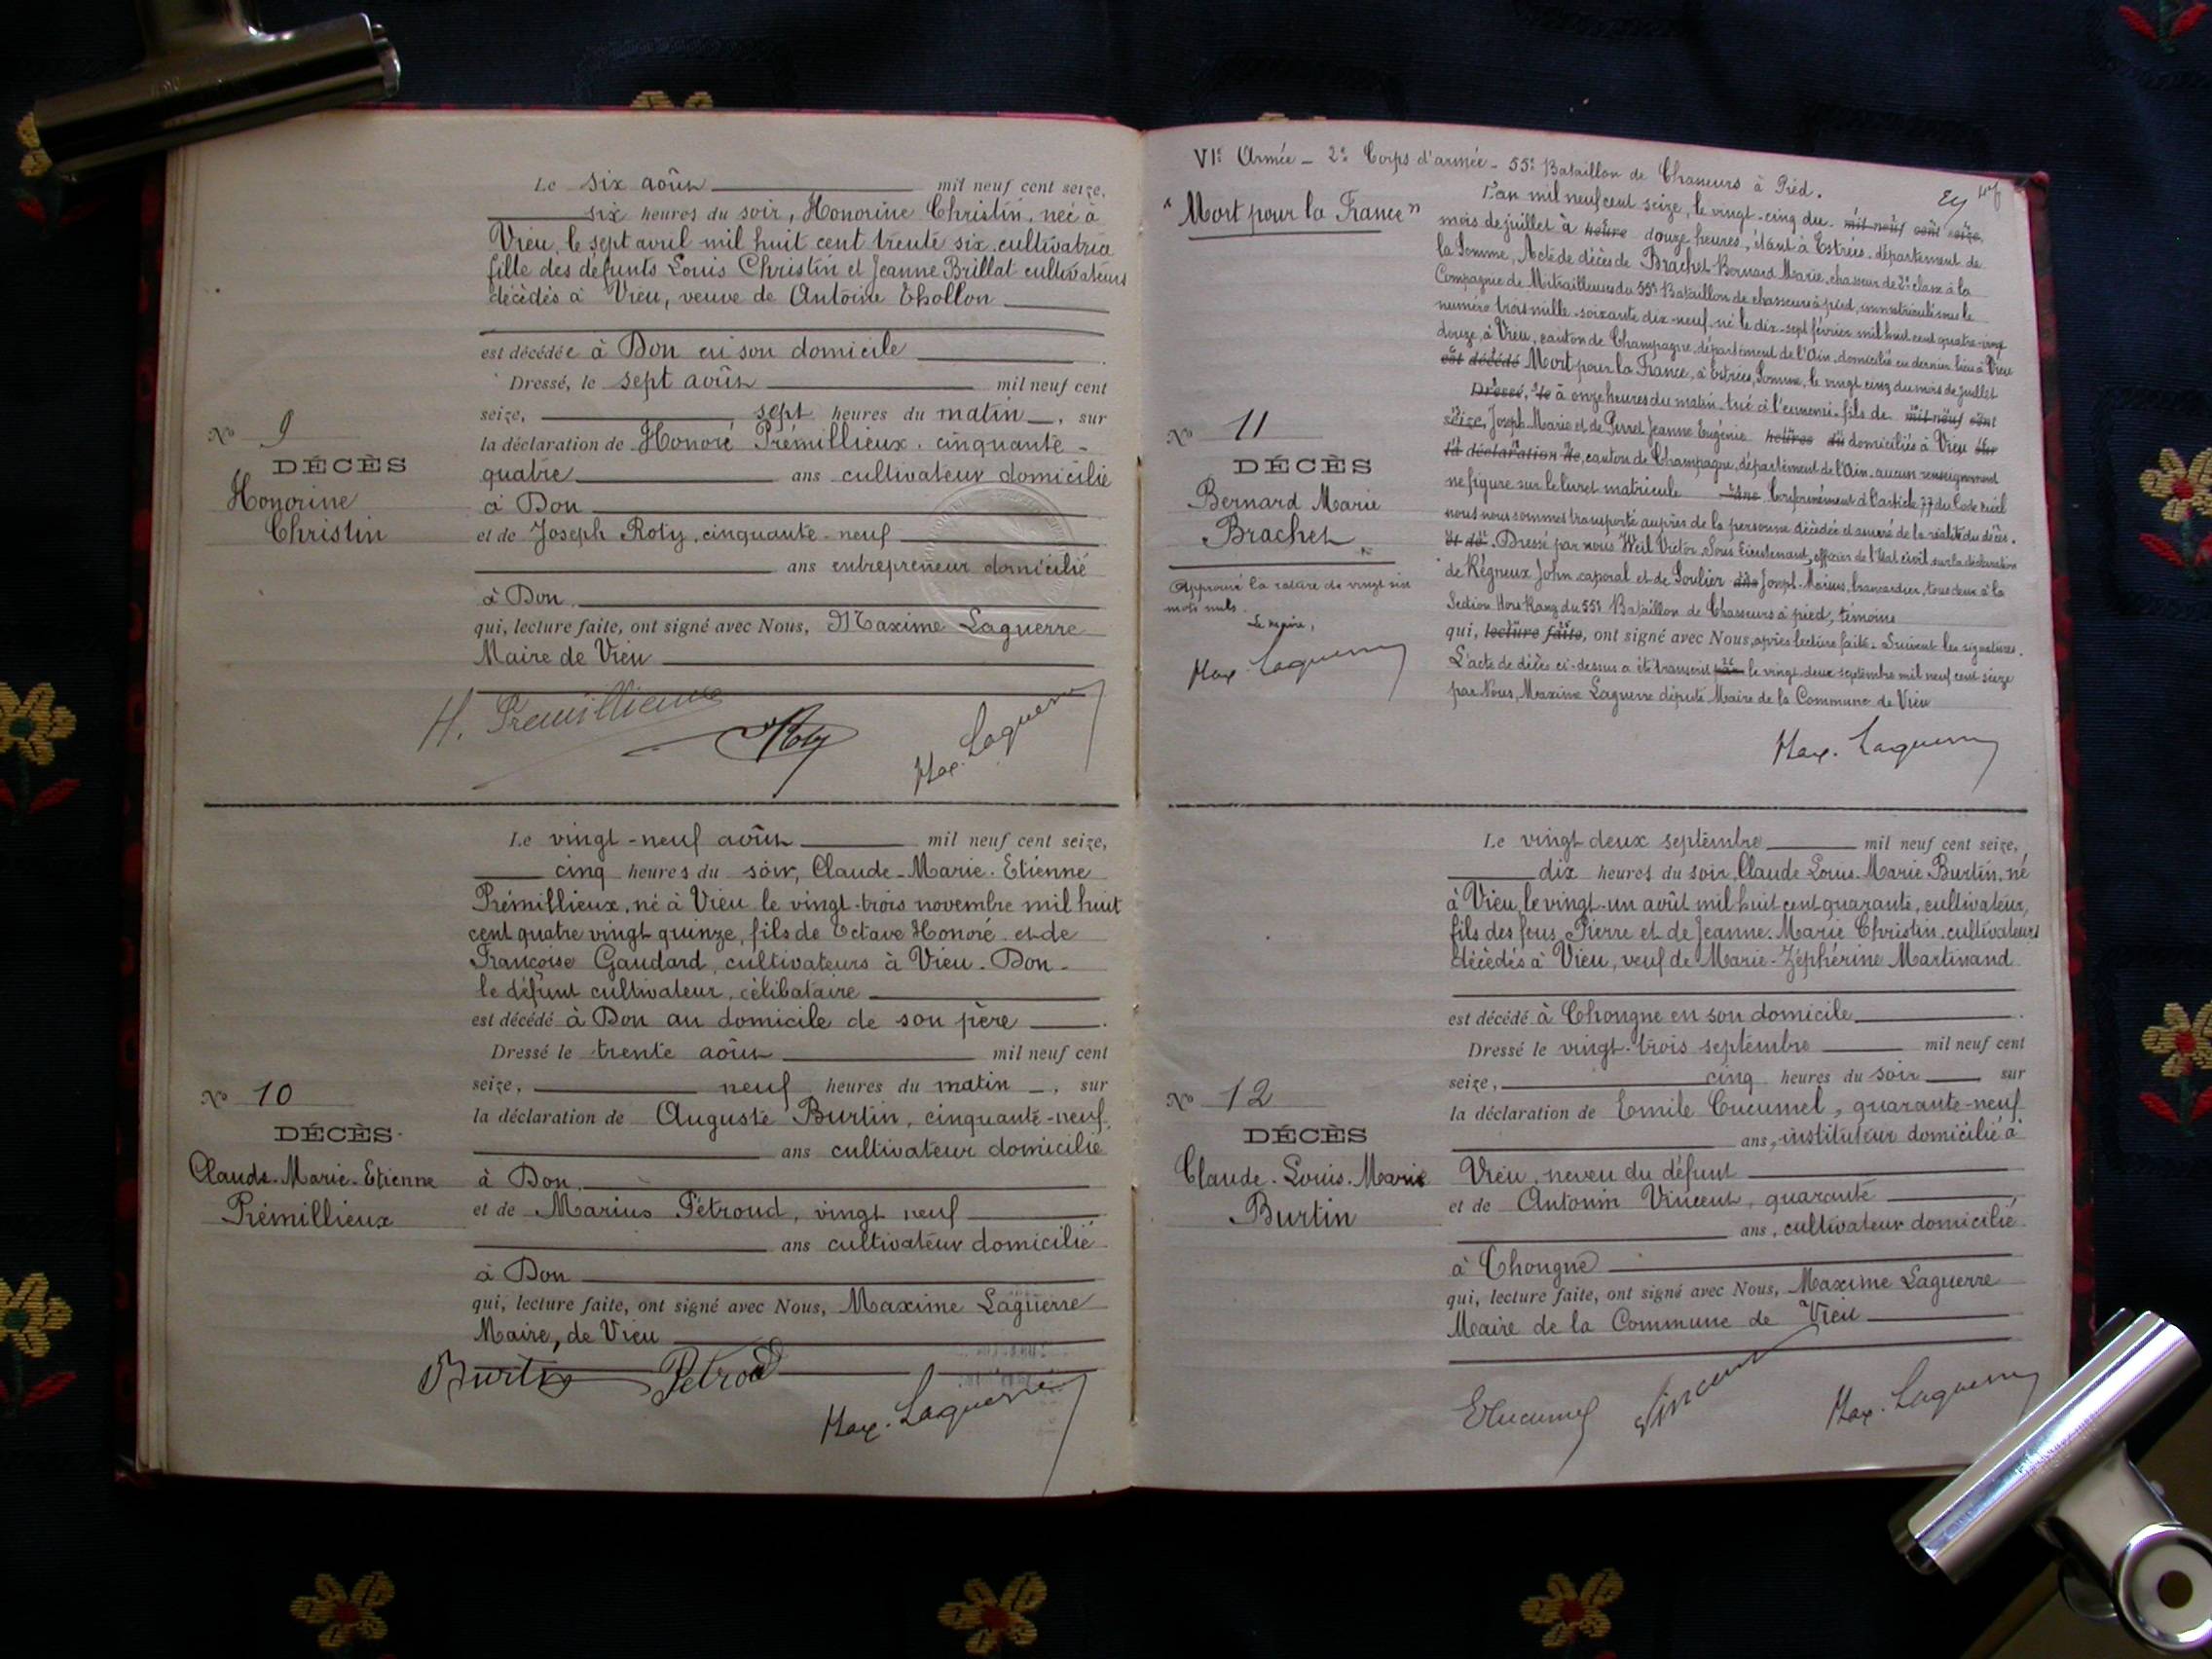 Le six août mil neuf cent seize,
six heures du soir, Honorine Christin, née à
Vieu, le sept avril mil huit cent trente six, cultivatrice
fille des défunts Louis Christin et Jeanne Brillat cultivateurs
décédés à Vieu, veuve de Antoine
est décédée à Don en son domicile
Dressé, le sept août mil neuf cent
seize, sept heures du matin, sur
la déclaration de Honoré Prémillieux, cinquante-
quatre ans cultivateur domicilié
à Don
et de Joseph Roty, cinquante-neuf
ans entrepreneur domicilié
à Don
qui, lecture faite, ont signé avec Nous, Maxime Laguerre
Maire de Vieu
N° 9
DÉCÈS
Honorine
Christin
H. Prémillieux Roty Max. Laguerre
Le vingt-neuf août mil neuf cent seize,
cinq heures du soir, Claude-Marie-Etienne
Prémillieux, né à Vieu le vingt-trois novembre mil huit
cent quatre vingt quinze, fils de Octave Honoré et de
Françoise Gaudard, cultivateurs à Vieu-Don-
le défunt cultivateur, célibataire
est décédé à Don au domicile de son père
Dressé le trente août mil neuf cent
seize, neuf heures du matin, sur
la déclaration de Auguste Burtin, cinquante-neuf
ans cultivateur domicilié
à Don
et de Marius Pétroud, vingt neuf
ans cultivateur domicilié
à Don
qui, lecture faite, ont signé avec Nous, Maxime Laguerre
Maire, de Vieu
N° 10
DÉCÈS
Claude-Marie-Etienne
Prémillieux
Burtin Petroud Max. Laguerre
VIe Armée - 2e Corps d'armée - 55e Bataillon de Chasseurs à Pied.
"Mort pour la France"
L'an mil neuf cent seize, le vingt-cinq du mil neuf cent seize,
mois de juillet à heure douze heures, étant à Estrées, département de
la Somme, Acte de décès de Brachet Bernard Marie, chasseur de 2e classe à la
Compagnie de Mitrailleuses du 55e Bataillon de chasseurs à pied, immatriculé sous le
numéro trois mille soixante dix-neuf, né le dix-sept février mil huit cent quatre-vingt
douze, à Vieu, canton de Champagne, département de l'Ain, domicilié en dernier lieu à Vieu
est décédé Mort pour la France, à Estrées, Somme, le vingt cinq du mois de juillet
Dressé, le à onze heures du matin, tué à l'ennemi, fils de mil neuf cent
seize, Joseph Marie et de Perret Jeanne Eugénie heures du domiciliés à Vieu sur
la déclaration de, canton de Champagne, département de l'Ain, aucun renseignement
ne figure sur le livret matricule ans Conformément à l'article 77 du Code civil
nous nous sommes transporté auprès de la personne décédée et assuré de la réalité du décès.
et de. Dressé par nous Weil Victor, Sous Lieutenant, officier de l'Etat civil, sur la déclaration
de Régneux John, caporal et de Soulier ans Joseph-Marius, brancardier, tous deux à la
Section Hors Rang du 55e Bataillon de Chasseurs à pied, témoins
qui, lecture faite, ont signé avec Nous, après lecture faite. Suivent les signatures.
L'acte de décès ci-dessus a été transcrit le vingt-deux septembre mil neuf cent seize
par Nous, Maxime Laguerre député Maire de la Commune de Vieu
Max. Laguerre
N° 11
DÉCÈS
Bernard Marie
Brachet
Approuvé la rature de vingt six
mots nuls.
Le maire,
Max. Laguerre
Le vingt deux septembre mil neuf cent seize,
dix heures du soir, Claude Louis-Marie Burtin, né
à Vieu, le vingt-un août mil huit cent quarante, cultivateur,
fils des feus Pierre et de Jeanne-Marie Christin, cultivateurs
décédés à Vieu, veuf de Marie-Zéphérine Martinand
est décédé à Chongne en son domicile
Dressé le vingt-trois septembre mil neuf cent
seize, cinq heures du soir sur
la déclaration de Emile Cucumel, quarante-neuf
ans, instituteur domicilié à
Vieu, neveu du défunt
et de Antonin Vincent, quarante
ans, cultivateur domicilié
à Chongne
qui, lecture faite, ont signé avec Nous, Maxime Laguerre
Maire de la Commune de Vieu
N° 12
DÉCÈS
Claude-Louis-Marie
Burtin
ECucumel Vincent Max. Laguerre